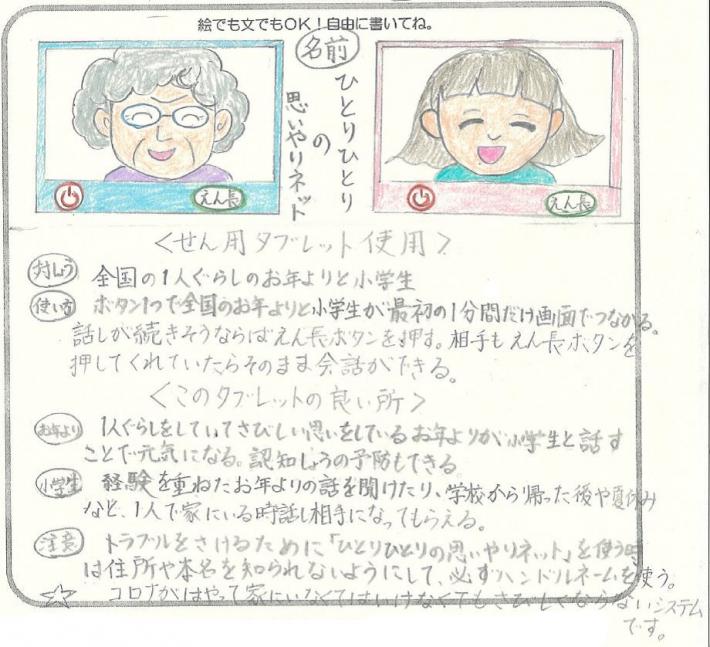 絵でも文でもOK！自由に書いてね。
名前
ひとりひとり
の
思いやりネット
えん長
えん長
＜せん用タブレット使用＞
対しょう 全国の1人ぐらしのお年よりと小学生
使い方 ボタン1つで全国のお年よりと小学生が最初の1分間だけ画面でつながる。
話しが続きそうならばえん長ボタンを押す。相手もえん長ボタンを
押してくれていたらそのまま会話ができる。
＜このタブレットの良い所＞
お年より 1人ぐらしをしていてさびしい思いをしているお年よりが小学生と話す
ことで元気になる。認知しょうの予防もできる。
小学生 経験を重ねたお年よりの話を聞けたり、学校から帰った後や夏休み
など、1人で家にいる時話し相手になってもらえる。
注意 トラブルをさけるために「ひとりひとりの思いやりネット」を使う時
は住所や本名を知られないようにして、必ずハンドルネームを使う。
☆ コロナがはやって家にいなくてはいけなくてもさびしくならないシステム
です。